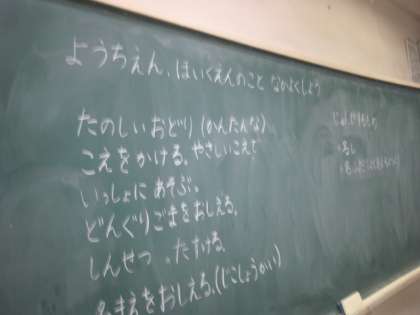 ようちえん、ほいくえんのこと なかよくしよう
たのしいおどり(かんたんな)
こえをかける。やさしいこえで
いっしょに あそぶ。
どんぐりごまをおしえる。
しんせつ 。たすける。
なまえをおしえる。(じこしょうかい)